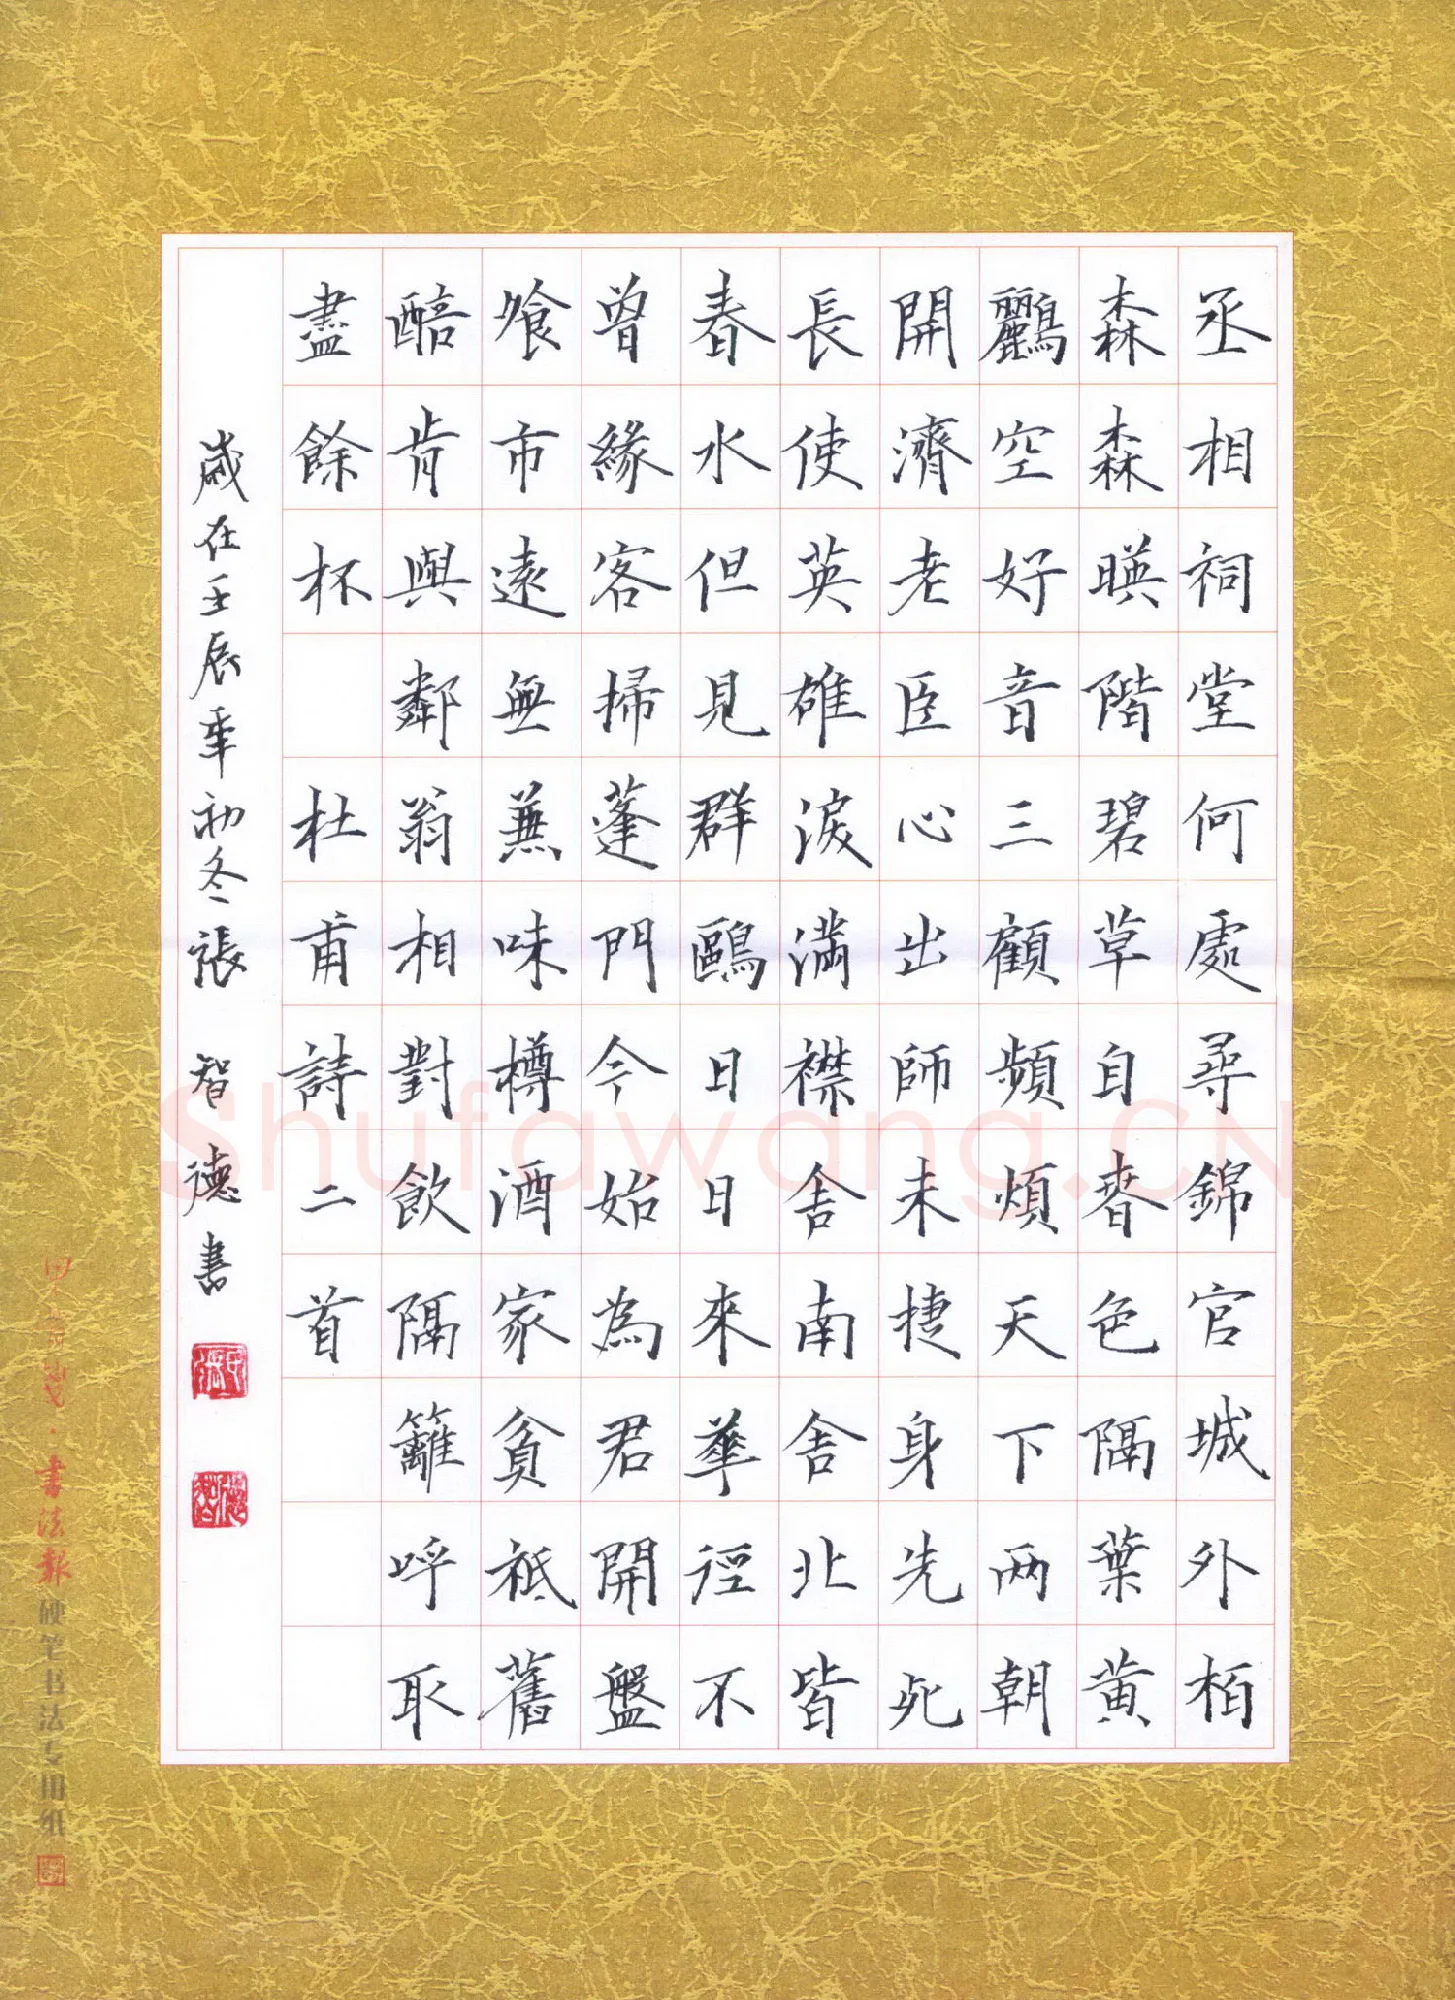 丞相祠堂何處尋錦官城外栢
森森暎階碧草自春色隔葉黃
鸝空好音三顧頻煩天下两朝
開濟老臣心出師未捷身先死
長使英雄淚滿襟舍南舍北皆
春水但見群鷗日日來華徑不
曾緣客掃蓬門今始為君開盤
飧市遠無兼味樽酒家貧祗舊
醅肯與鄰翁相對飲隔籬呼取
盡餘杯 杜甫詩二首
歲在壬辰年初冬張智德書
書法報硬笔书法专用纸
Shufawang.CN